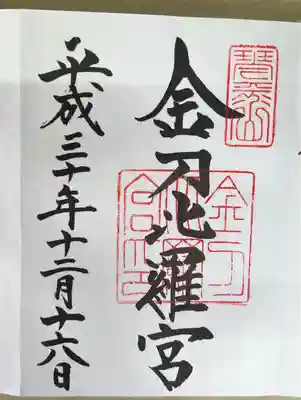 琴平山
金刀比羅宮
平成三十年十二月十六日